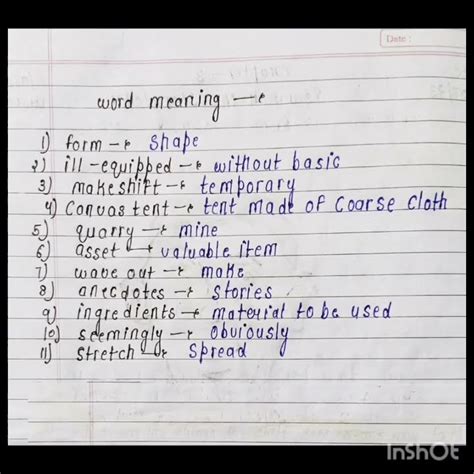 Date :
word meaning →
1) form → shape
2) ill-equipped → without basic
3) makeshift → temporary
4) Convas tent → tent made of Coarse Cloth
5) quarry → mine
6) asset → valuable item
7) wave out → make
8) anecdotes → stories
9) ingredients → material to be used
10) seemingly → obviously
11) stretch → Spread
InShOt